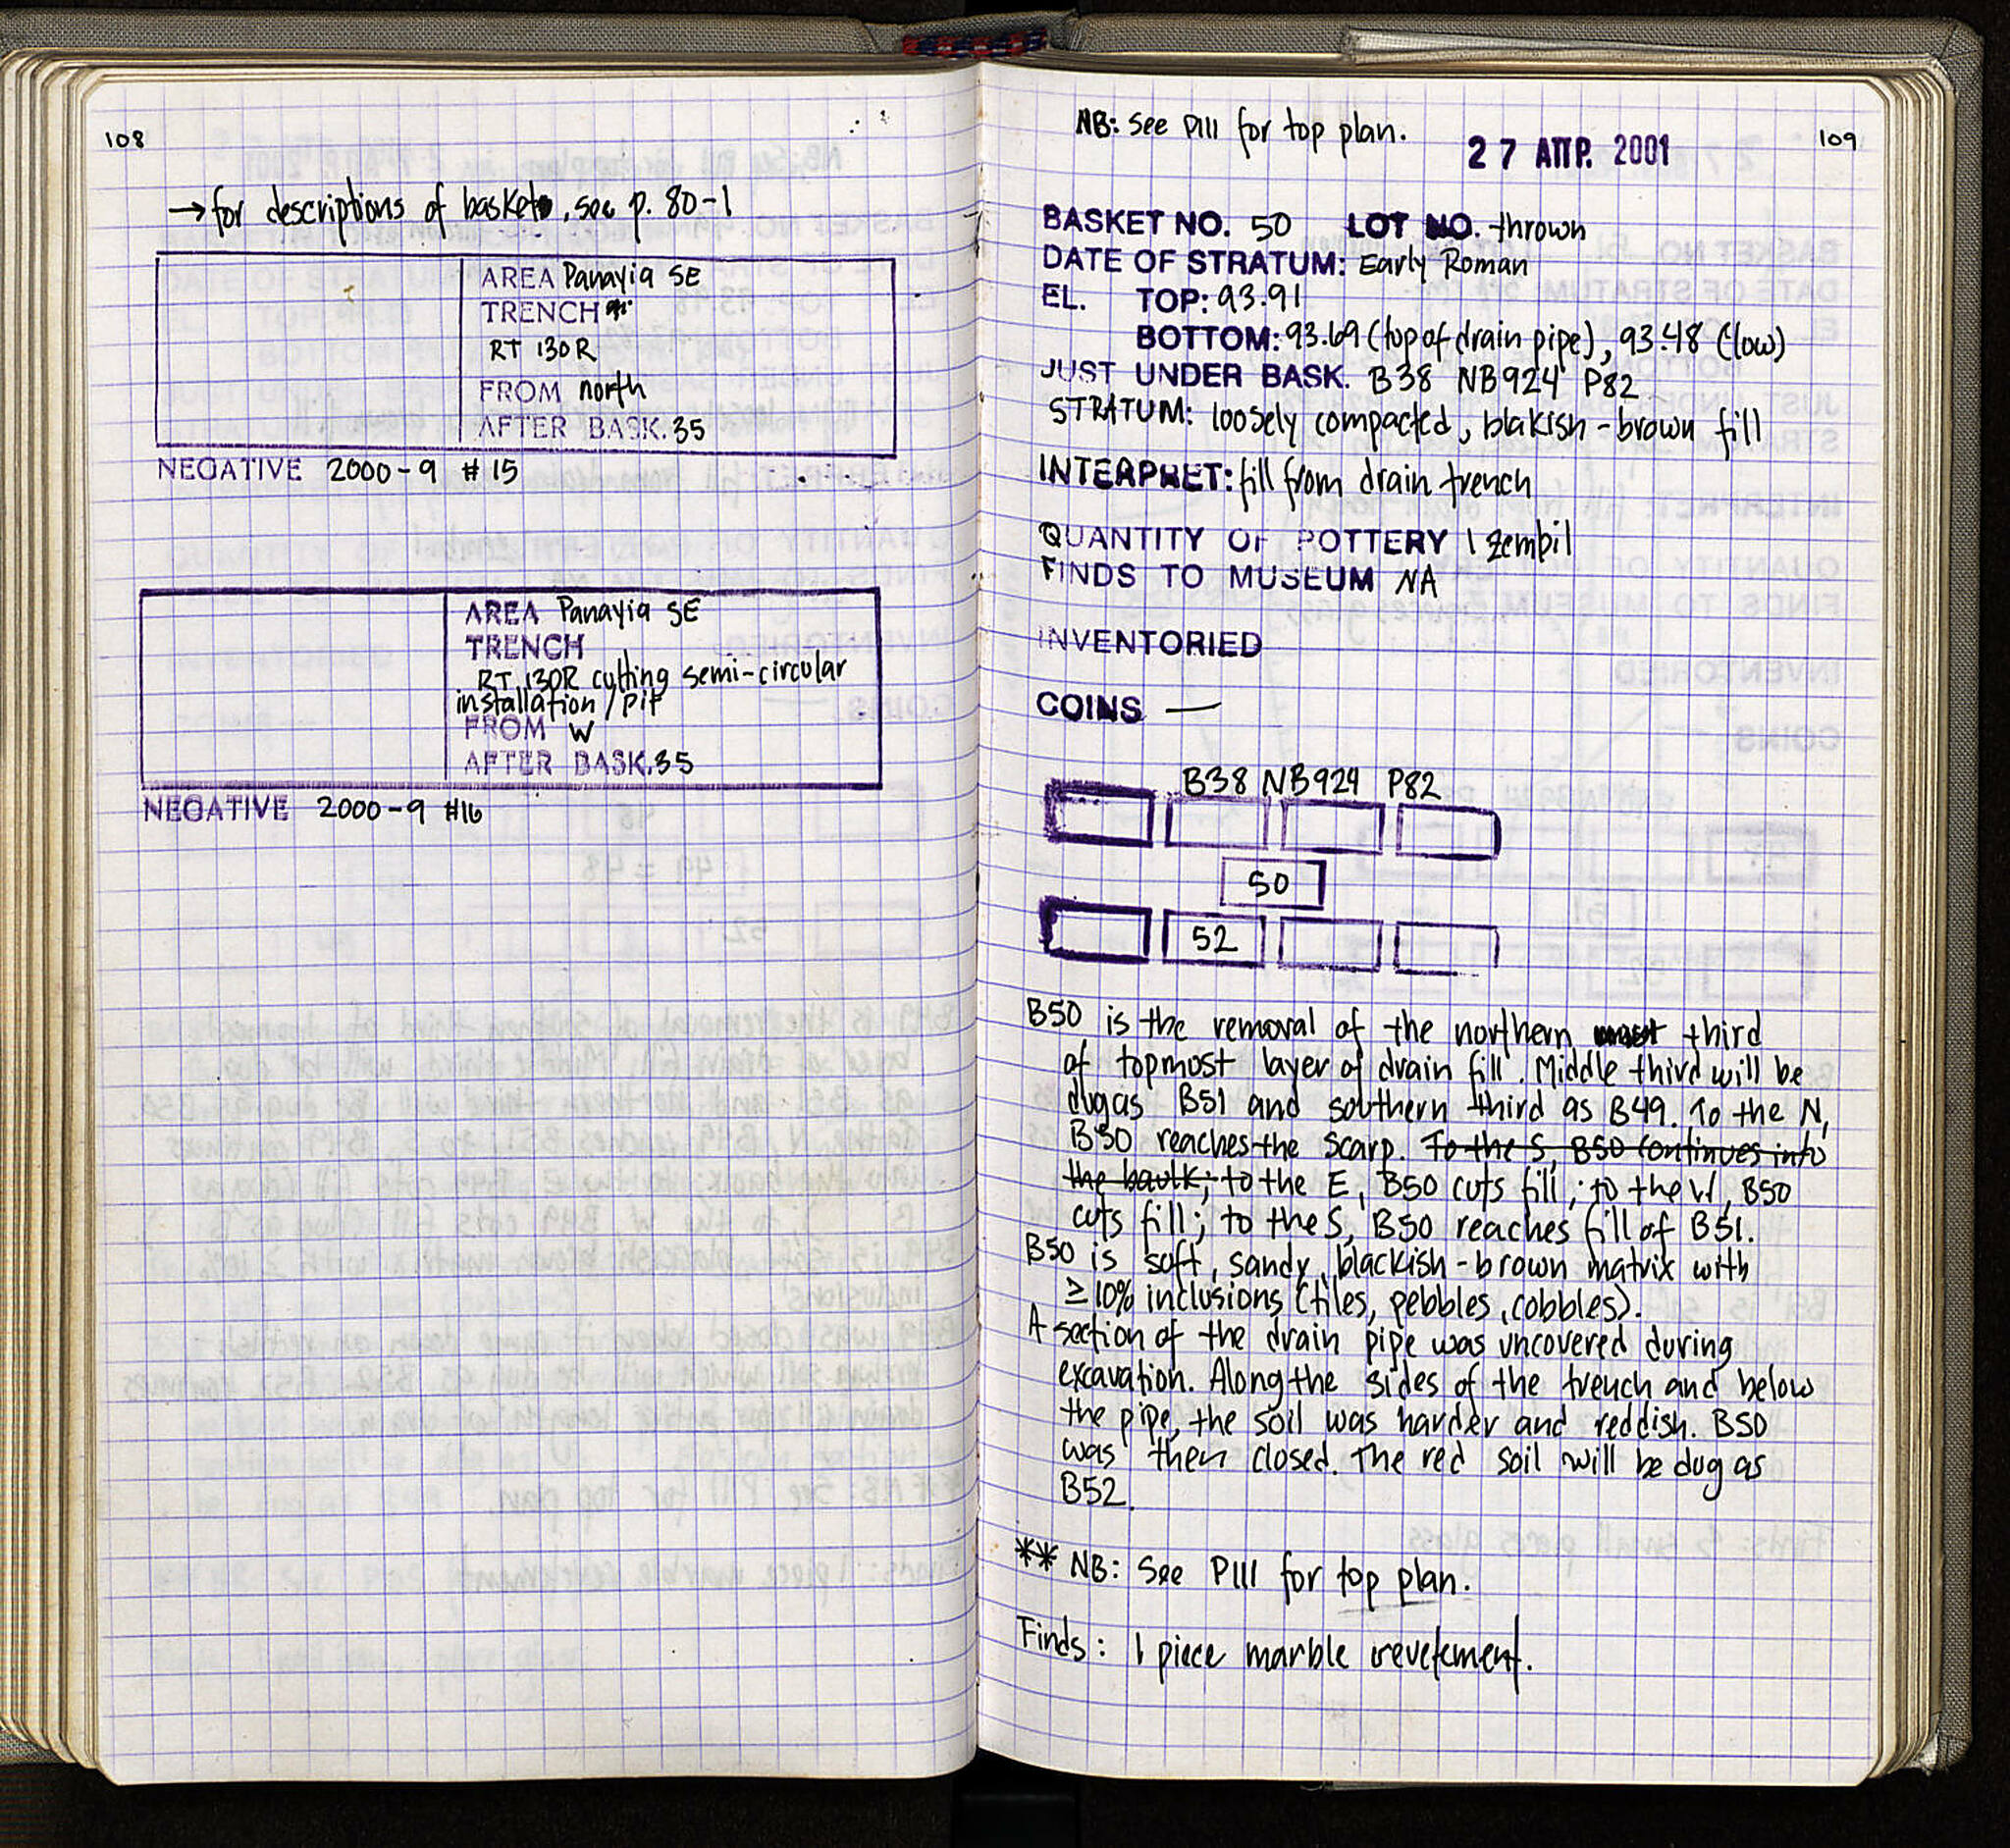 108
→ for descriptions of baskets, see p. 80-1
AREA Panayia SE
TRENCH
RT 130R
FROM north
AFTER BASK. 35
NEGATIVE 2000-9 #15
AREA Panayia SE
TRENCH
RT 130R cutting semi-circular
installation / pit
FROM W
AFTER BASK. 35
NEGATIVE 2000-9 #16
NB: See P111 for top plan.
27 ΑΠΡ. 2001
109
BASKET NO. 50 LOT NO. thrown
DATE OF STRATUM: Early Roman
EL. TOP: 93.91
BOTTOM: 93.69 (top of drain pipe), 93.48 (low)
JUST UNDER BASK. B38 NB924 P82
STRATUM: loosely compacted, blakish-brown fill
INTERPRET: fill from drain trench
QUANTITY OF POTTERY 1 zembil
FINDS TO MUSEUM NA
INVENTORIED
COINS —
B38 NB924 P82
50
52
B50 is the removal of the northern most third
of topmost layer of drain fill. Middle third will be
dug as B51 and southern third as B49. To the N,
B50 reaches the scarp. To the S, B50 continues into
the baulk; to the E, B50 cuts fill; to the W, B50
cuts fill; to the S, B50 reaches fill of B51.
B50 is soft, sandy, blackish-brown matrix with
≥10% inclusions (tiles, pebbles, cobbles).
A section of the drain pipe was uncovered during
excavation. Along the sides of the trench and below
the pipe, the soil was harder and reddish. B50
was then closed. The red soil will be dug as
B52.
** NB: See P111 for top plan.
Finds: 1 piece marble revetement.